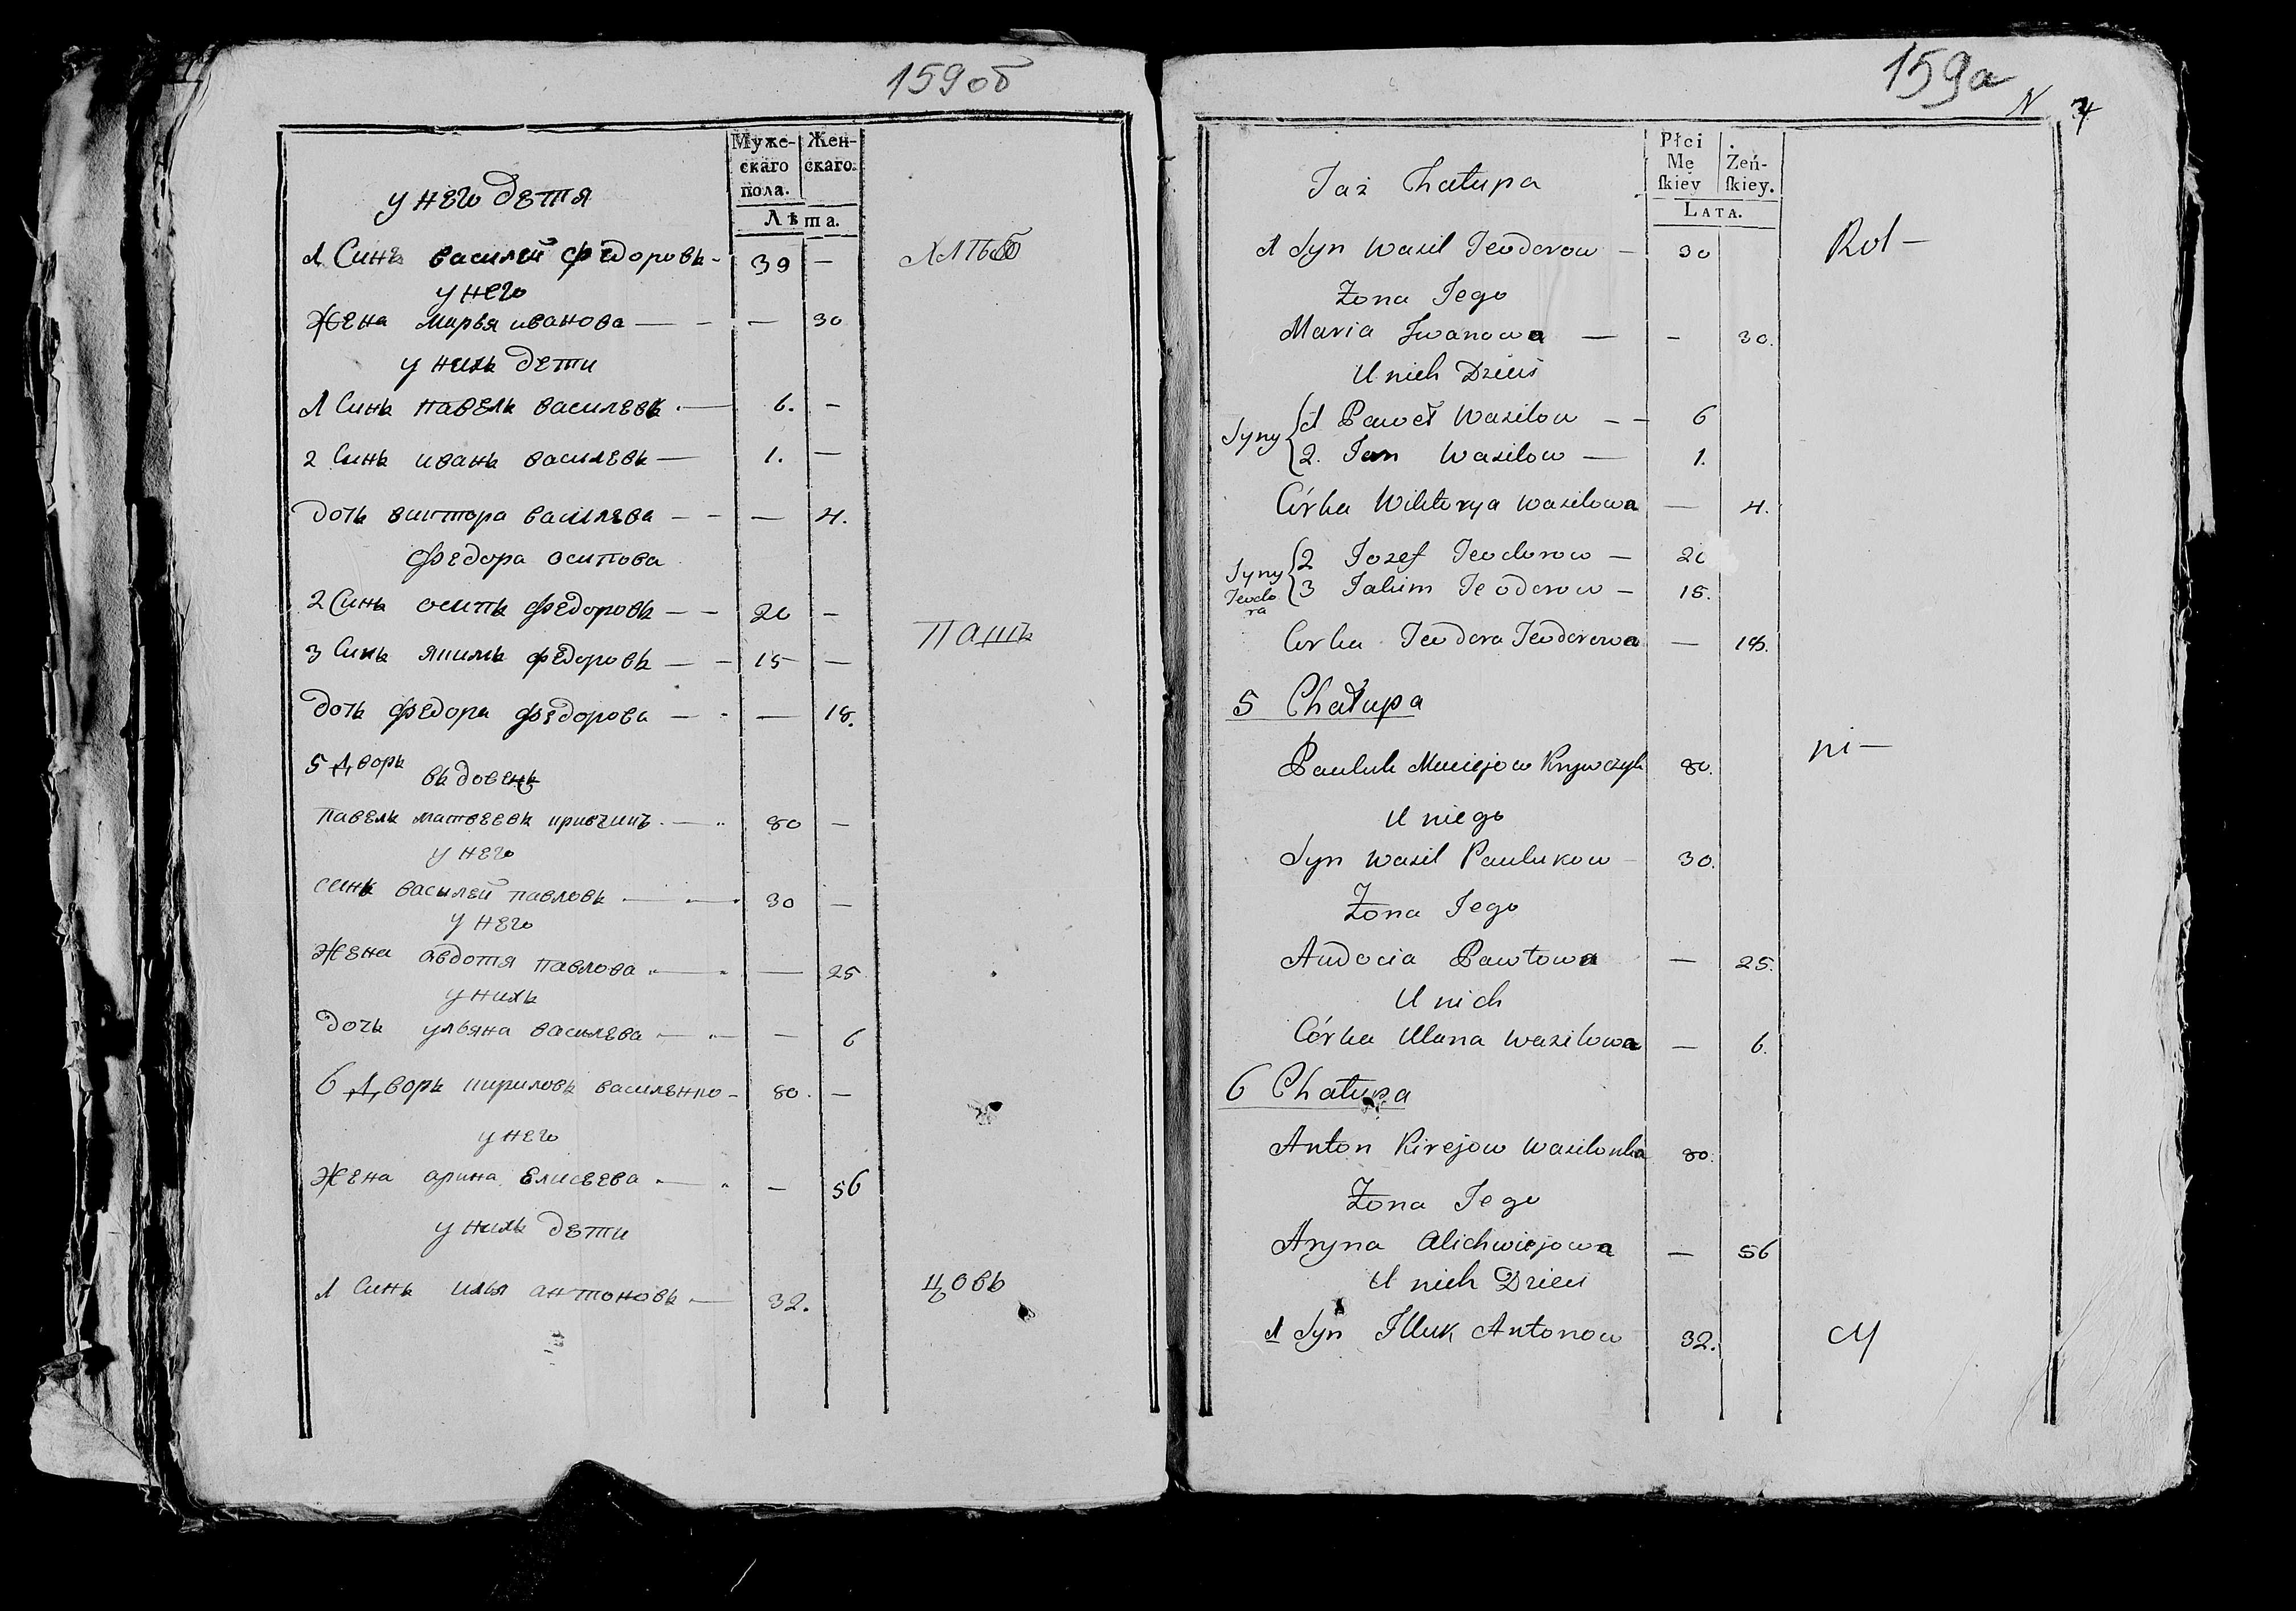 159об
Муже-
скаго
пола.
Жен-
скаго.
Лѣта.
у него детя
1 Синъ василей федоровъ - 39 —
хлѣб
у него
Жена марья иванова — - — 30
у нихъ дети
1 Синъ павелъ василевъ . — 6. —
2 Синъ иванъ василевъ — 1. —
дочь виктора василева - - — 4.
федора осипова
2 Синъ осипъ федоровъ — - 20 —
3 Синъ якимъ федоровъ — - 15 —
пашъ
дочь федора федорова — - — 18.
5 Дворъ
въдовецъ
павелъ матвеевъ кривчикъ . — 80 —
у него
синъ василей павловъ — 30 —
у него
Жена авдотя павлова — — 25
у нихъ
дочь ульяна василева — — 6
6 Дворъ кириловъ василенко - 80. —
у него
Жена арина елисеева — — 56
у нихъ дети
1 Синъ илья антоновъ — 32.
цовъ
159а
N 4
Płci
Mę
ſkiey
Żeń-
ſkiey.
Lata.
Taż Chałupa
1 Syn Wasil Teodorow — 30
Rol —
Żona Jego
Maria Iwanowa — - 30.
U nich Dzieci
Syny 1 Paweł Wasilow — — 6
2. Jan Wasilow — 1.
Córka Wiktorya Wasilowa — 4.
Syny Teodora 2 Jozef Teodorow — 20
3 Jakim Teodorow — 15.
Corka Teodora Teodorowa — 18.
5 Chałupa
Pauluk Maciejow Krywczyk 80.
ni —
U niego
Syn Wasil Paulukow — 30.
Żona Jego
Audocia Pawłowa — 25.
U nich
Córka Ulana Wasilowa — 6.
6 Chałupa
Anton Kirejow Wasilonka 80.
Żona Jego
Aryna Alichwiejowa — 56
U nich Dzieci
1 Syn Illuk Antonow 32.
cy